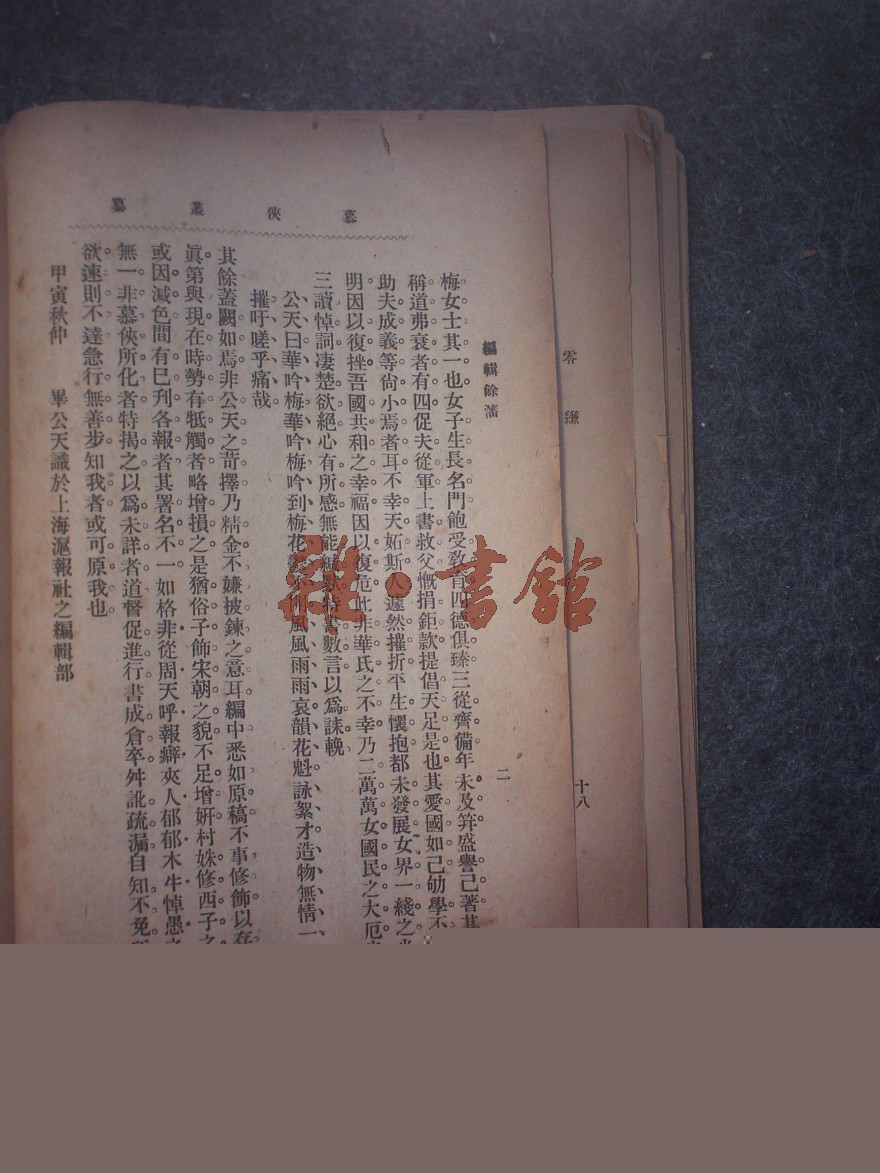 慕俠叢纂
編輯餘瀋
二
梅女士其一也。女子生長名門。飽受教育。四德俱臻。三從齊備。年未及笄。盛譽已著。其
稱道弗衰者有四。促夫從軍。上書救父。慨捐鉅款。提倡天足是也。其愛國如己。劬學不
助夫成義等。尙小焉者耳。不幸天妬斯人。遽然摧折。平生懷抱。都未發展。女界一綫之光
明。因以復挫。吾國共和之幸福。因以復厄。此非華氏之不幸。乃二萬萬女國民之大厄
三讀悼詞。凄楚欲絕。心有所感。無能緘默。特書數言。以爲誄輓。
公天曰。華吟梅。華吟梅。吟到梅花風風雨雨。哀韻花魁。詠絮才。造物無情一
摧。吁嗟乎痛哉。
其餘蓋闕如焉。非公天之苛擇。乃精金不嫌披鍊之意耳。編中悉如原稿。不事修飾。以存
眞。第與現在時勢有牴觸者。略增損之。是猶俗子飾宋朝之貌。不足增妍。村姝修西子之
或因減色。間有已刋各報者。其署名不一。如格非。從周。天呼。報癖。夾人。郁郁。木牛。悼愚之
無一非慕俠所化者。特揭之以爲未詳者道。督促進行。書成倉卒。舛訛疏漏。自知不免。
欲速則不達。急行無善步。知我者或可原我也。
甲寅秋仲　畢公天識於上海滬報社之編輯部
零縑
十八
雜·書館